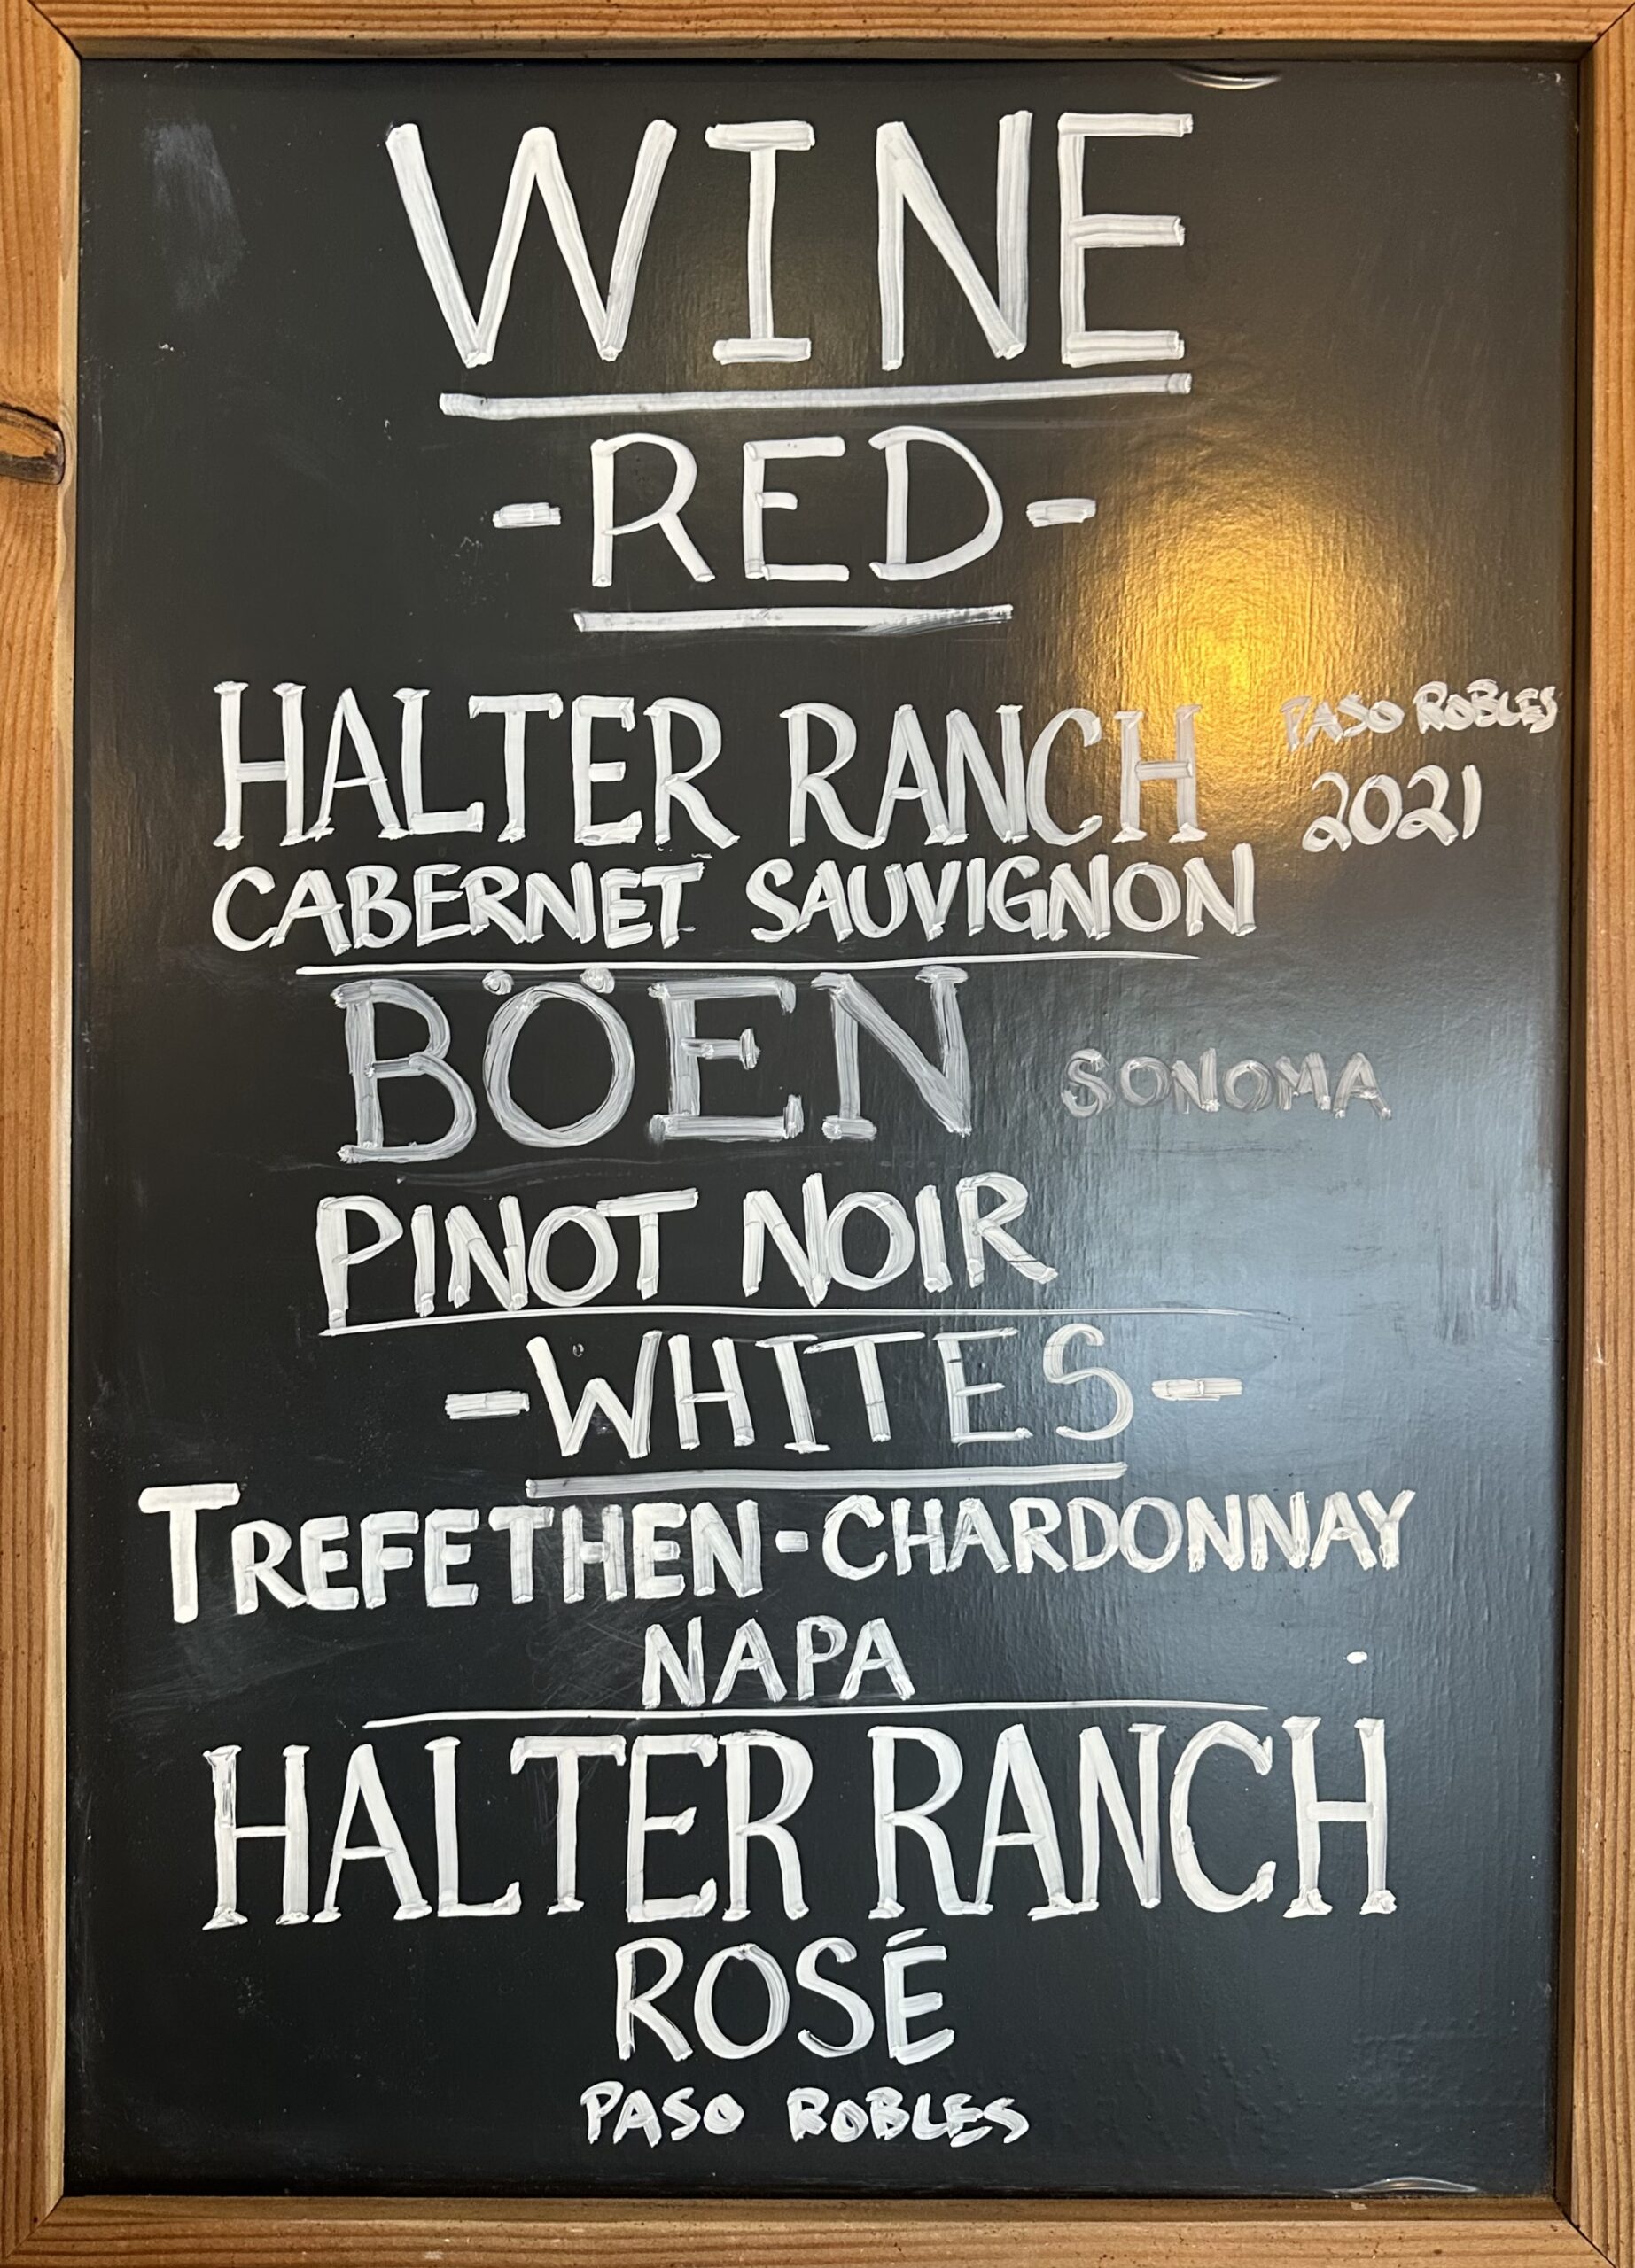 WINE
-RED-
HALTER RANCH PASO ROBLES
2021
CABERNET SAUVIGNON
BÖEN SONOMA
PINOT NOIR
-WHITES-
TREFETHEN-CHARDONNAY
NAPA
HALTER RANCH
ROSÉ
PASO ROBLES